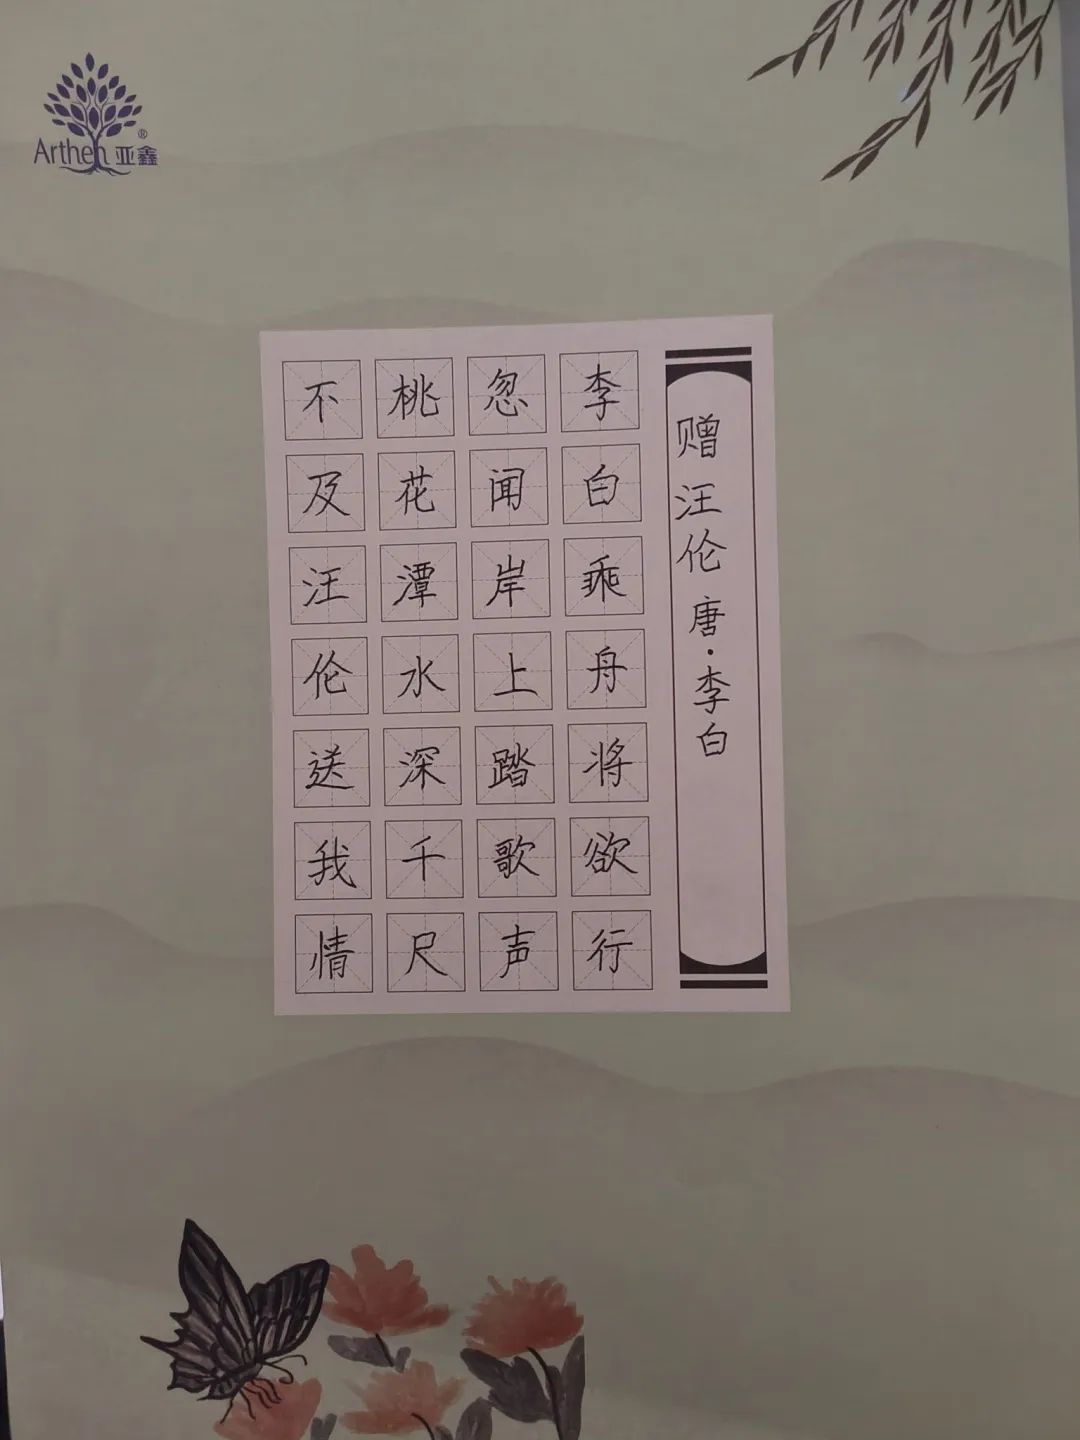 Arthen 亚鑫®
赠汪伦 唐·李白
李白乘舟将欲行
忽闻岸上踏歌声
桃花潭水深千尺
不及汪伦送我情